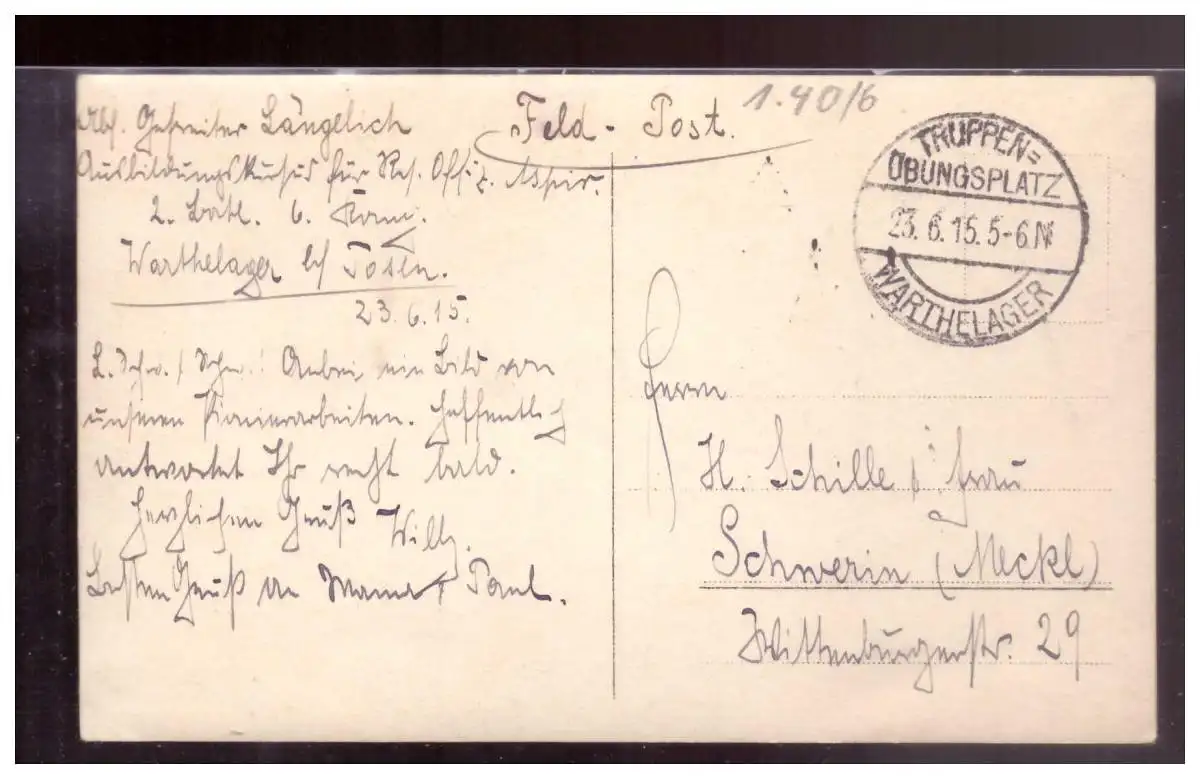 Abs. Gefreiter Längelich
Ausbildungskursus für Res. Offiz. Aspir.
2. Batl. 6. Komp.
Warthelager b/ Posen.
23.6.15.
L. Schw. / Schw.! Anbei ein Bild von
unseren Pionierarbeiten. Hoffentlich
antwortet Ihr recht bald.
Herzlichen Gruß Willy.
Besten Gruß an Mama & Paul.
Feld-Post.
1.40/6
TRUPPEN=
ÜBUNGSPLATZ
23.6.15.5-6N
WARTHELAGER
Herrn
H. Schille & Frau
Schwerin (Meckl)
Wittenburgerstr. 29